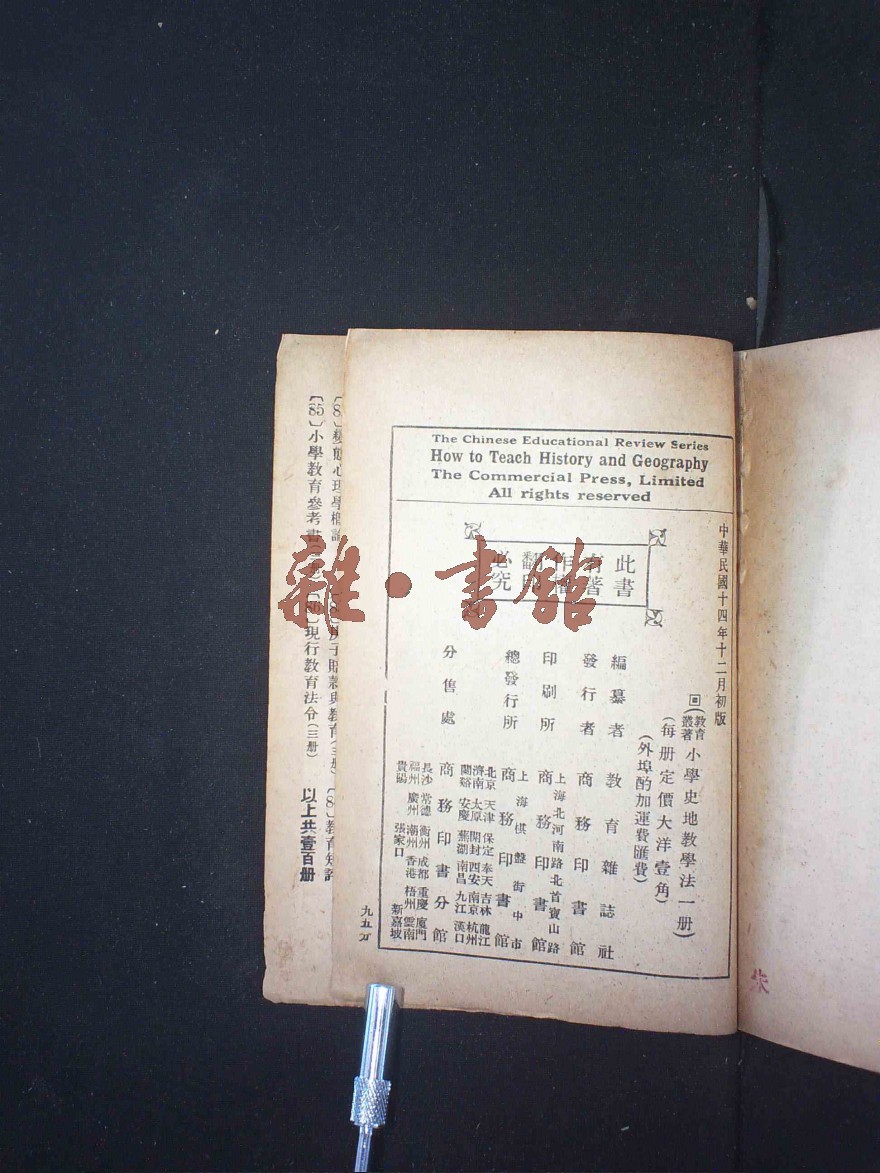 The Chinese Educational Review Series
How to Teach History and Geography
The Commercial Press, Limited
All rights reserved
中華民國十四年十二月初版
回(教育叢著小學史地教學法一册)
(每册定價大洋壹角)
(外埠酌加運費匯費)
此書
有著
作權
翻印
必究
編纂者 教育雜誌社
發行者 商務印書館
印刷所 上海北河南路北首寶山路 商務印書館
總發行所 上海棋盤街中市 商務印書館
分售處 商務印書分館
北京 天津 保定 奉天 吉林 龍江
濟南 太原 開封 西安 南京 杭州
蘭谿 安慶 蕪湖 南昌 九江 漢口
長沙 常德 衡州 成都 重慶 廈門
福州 廣州 潮州 香港 梧州 雲南
貴陽 張家口 新嘉坡
九五
教育
〔85〕小學教育參考書
現行教育法令(三册)
以上共壹百册
雜·書館